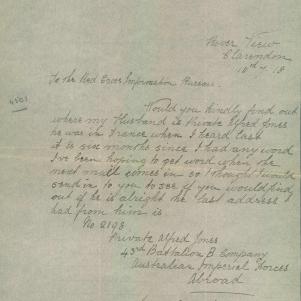 River View
Clarendon
10th-4-18
To the Red Cross Information Bureau.
4501
Would you kindly find out
where my Husband is Private Alfred Jones
he was in France when I heard last
it is six months since I had any word
I've been hoping to get word when the
next mail comes in so I thought I would
send in to you to see if you would find
out if he is alright the last address I
had from him is
No 2193
Private Alfred Jones
45th Battalion B Company
Australian Imperial Forces
Abroad